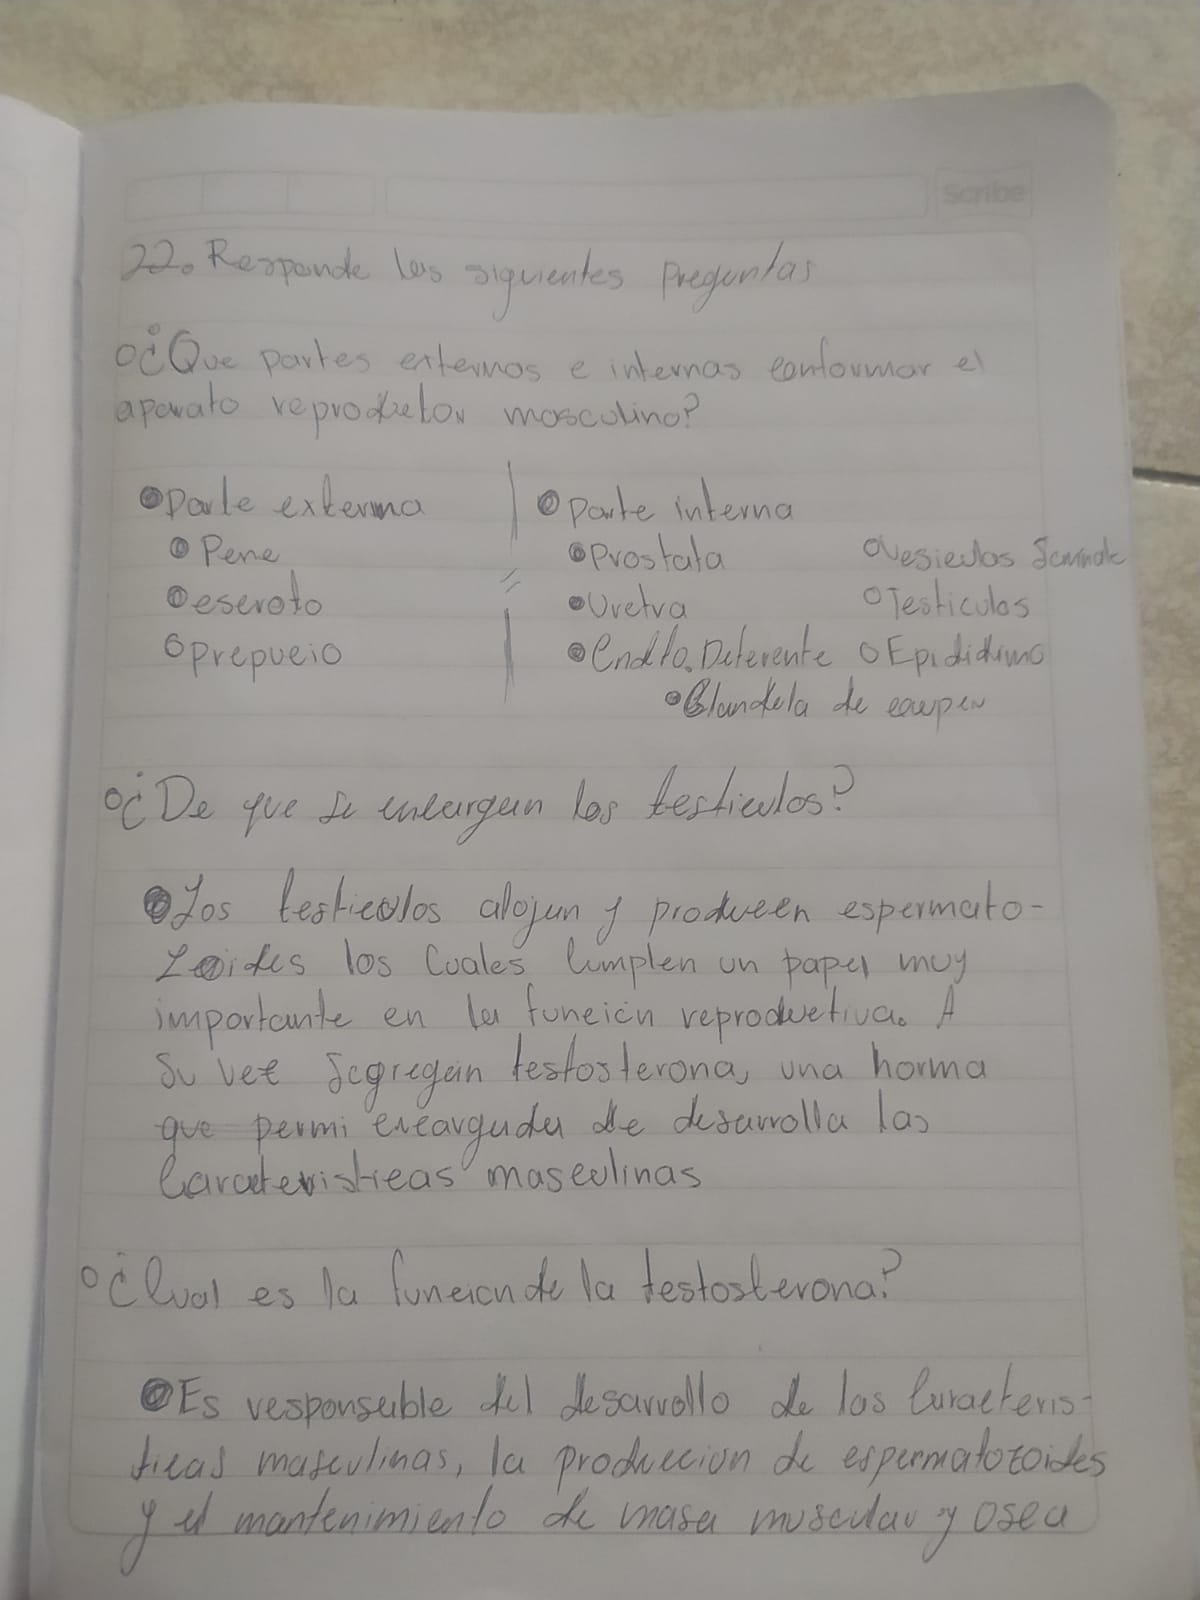 Scribe
22. Responde las siguientes preguntas
¿Que partes externas e internas conformar el
aparato reproductor masculino?
Parte externa
Pene
escroto
prepucio
parte interna
Prostata
Uretra
Cndto. Deferente
Glandula de cowper
Vesiculas Seminale
Testiculos
Epididimo
¿De que se encargan los testiculos?
Los testiculos alojan y producen espermato-
zoides los cuales cumplen un papel muy
importante en la función reproductiva. A
su vez segregan testosterona, una horma
que permi encargada de desarrolla las
Caracteristicas masculinas
¿Cual es la función de la testosterona?
Es responsable del desarrollo de las Caracteris-
ticas masculinas, la produccion de espermatozoides
y el mantenimiento de masa muscular y osea